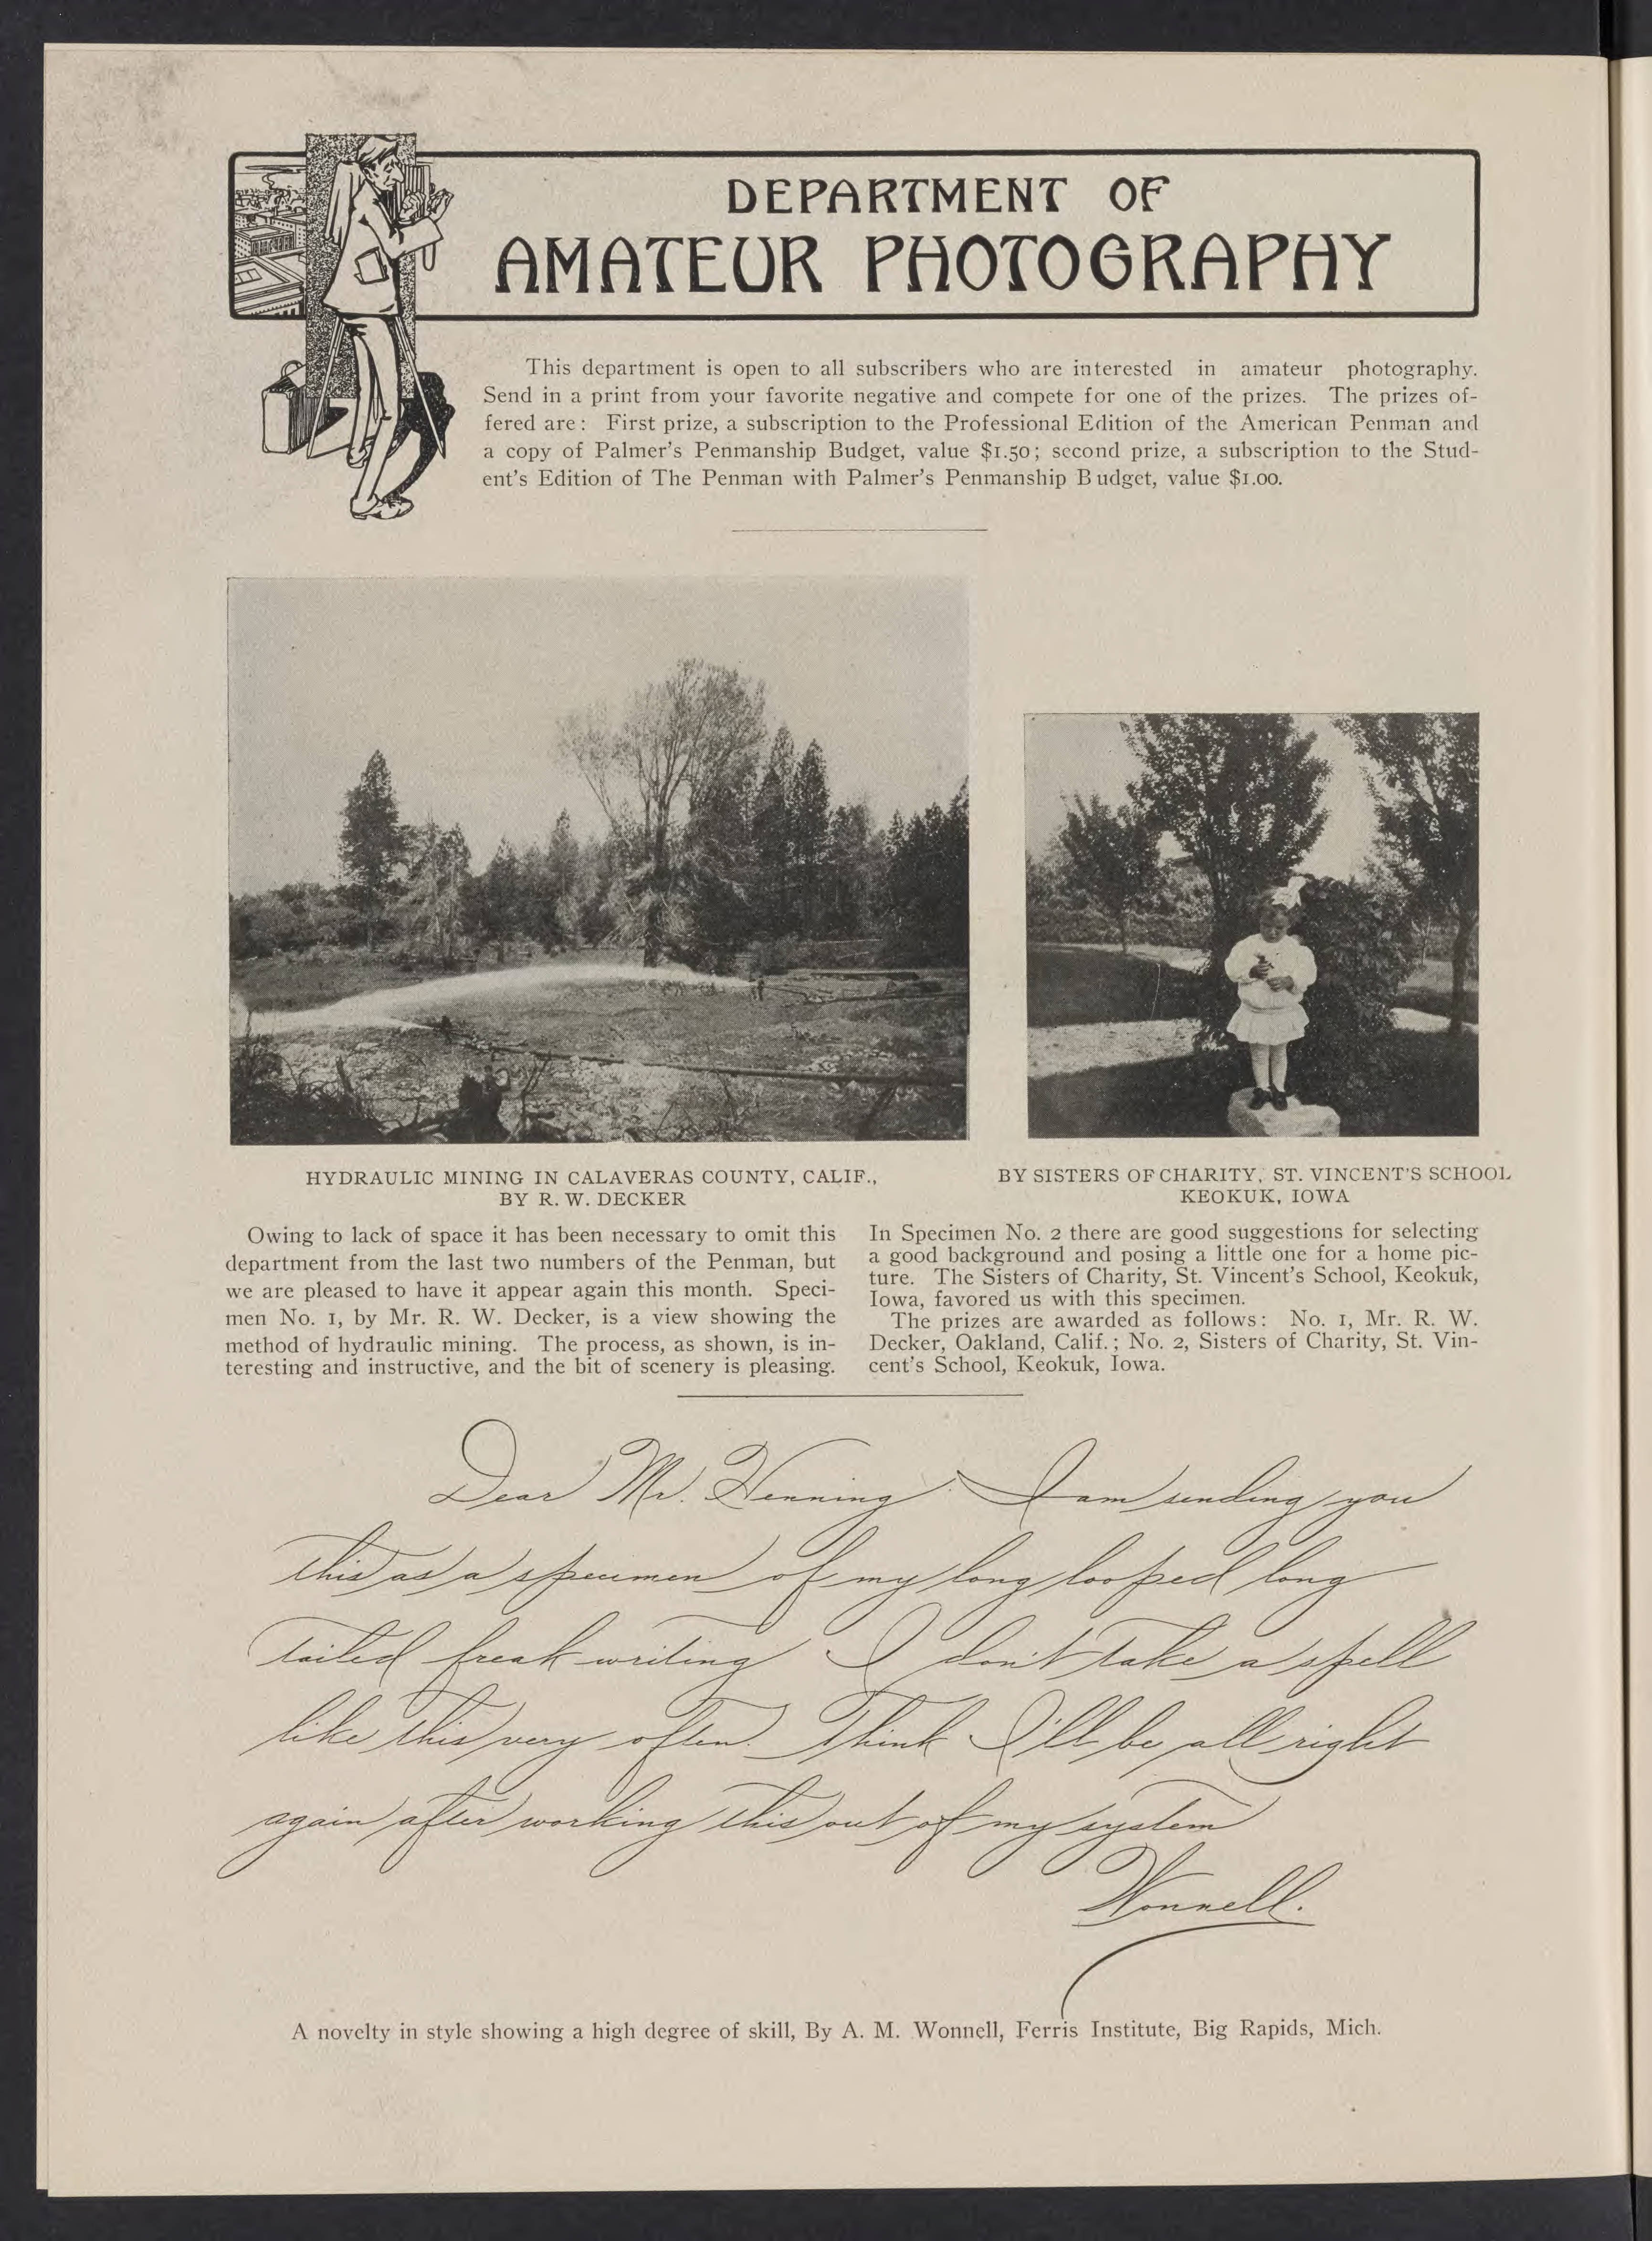 DEPARTMENT OF
AMATEUR PHOTOGRAPHY
This department is open to all subscribers who are interested in amateur photography.
Send in a print from your favorite negative and compete for one of the prizes. The prizes of-
fered are: First prize, a subscription to the Professional Edition of the American Penman and
a copy of Palmer's Penmanship Budget, value $1.50; second prize, a subscription to the Stud-
ent's Edition of The Penman with Palmer's Penmanship Budget, value $1.00.
HYDRAULIC MINING IN CALAVERAS COUNTY, CALIF.,
BY R. W. DECKER
BY SISTERS OF CHARITY, ST. VINCENT'S SCHOOL
KEOKUK, IOWA
Owing to lack of space it has been necessary to omit this
department from the last two numbers of the Penman, but
we are pleased to have it appear again this month. Speci-
men No. 1, by Mr. R. W. Decker, is a view showing the
method of hydraulic mining. The process, as shown, is in-
teresting and instructive, and the bit of scenery is pleasing.
In Specimen No. 2 there are good suggestions for selecting
a good background and posing a little one for a home pic-
ture. The Sisters of Charity, St. Vincent's School, Keokuk,
Iowa, favored us with this specimen.
The prizes are awarded as follows: No. 1, Mr. R. W.
Decker, Oakland, Calif.; No. 2, Sisters of Charity, St. Vin-
cent's School, Keokuk, Iowa.
Dear Mr. Henning I am sending you
this as a specimen of my long looped long
tailed freak writing I don't take a spell
like this very often. Think I'll be all right
again after working this out of my system
Wonnell.
A novelty in style showing a high degree of skill, By A. M. Wonnell, Ferris Institute, Big Rapids, Mich.